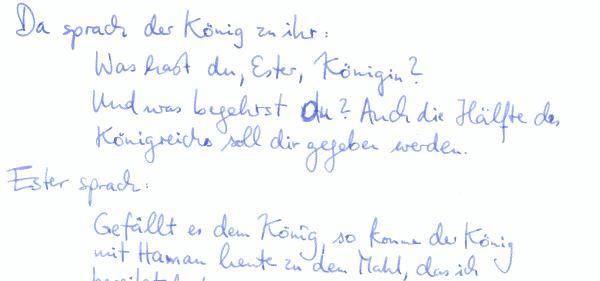 Da sprach der König zu ihr:
Was hast du, Ester, Königin?
Und was begehrst du? Auch die Hälfte des
Königreichs soll dir gegeben werden.
Ester sprach:
Gefällt es dem König, so komme der König
mit Haman heute zu dem Mahl, das ich